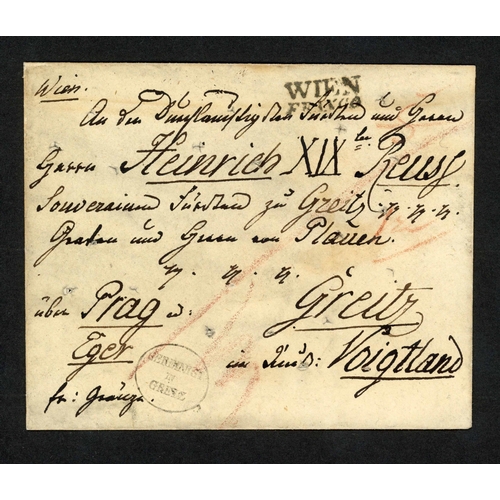 Wien.
WIEN
FRANCO
An den Durchlauchtigsten Fürsten und Herrn
Herrn Heinrich XIX ten Reuss
Souverainen Fürsten zu Greitz
Grafen und Herrn von Plauen.
über Prag u:
Greitz
Eger
im Reuß: Voigtland
fr: Gränze.